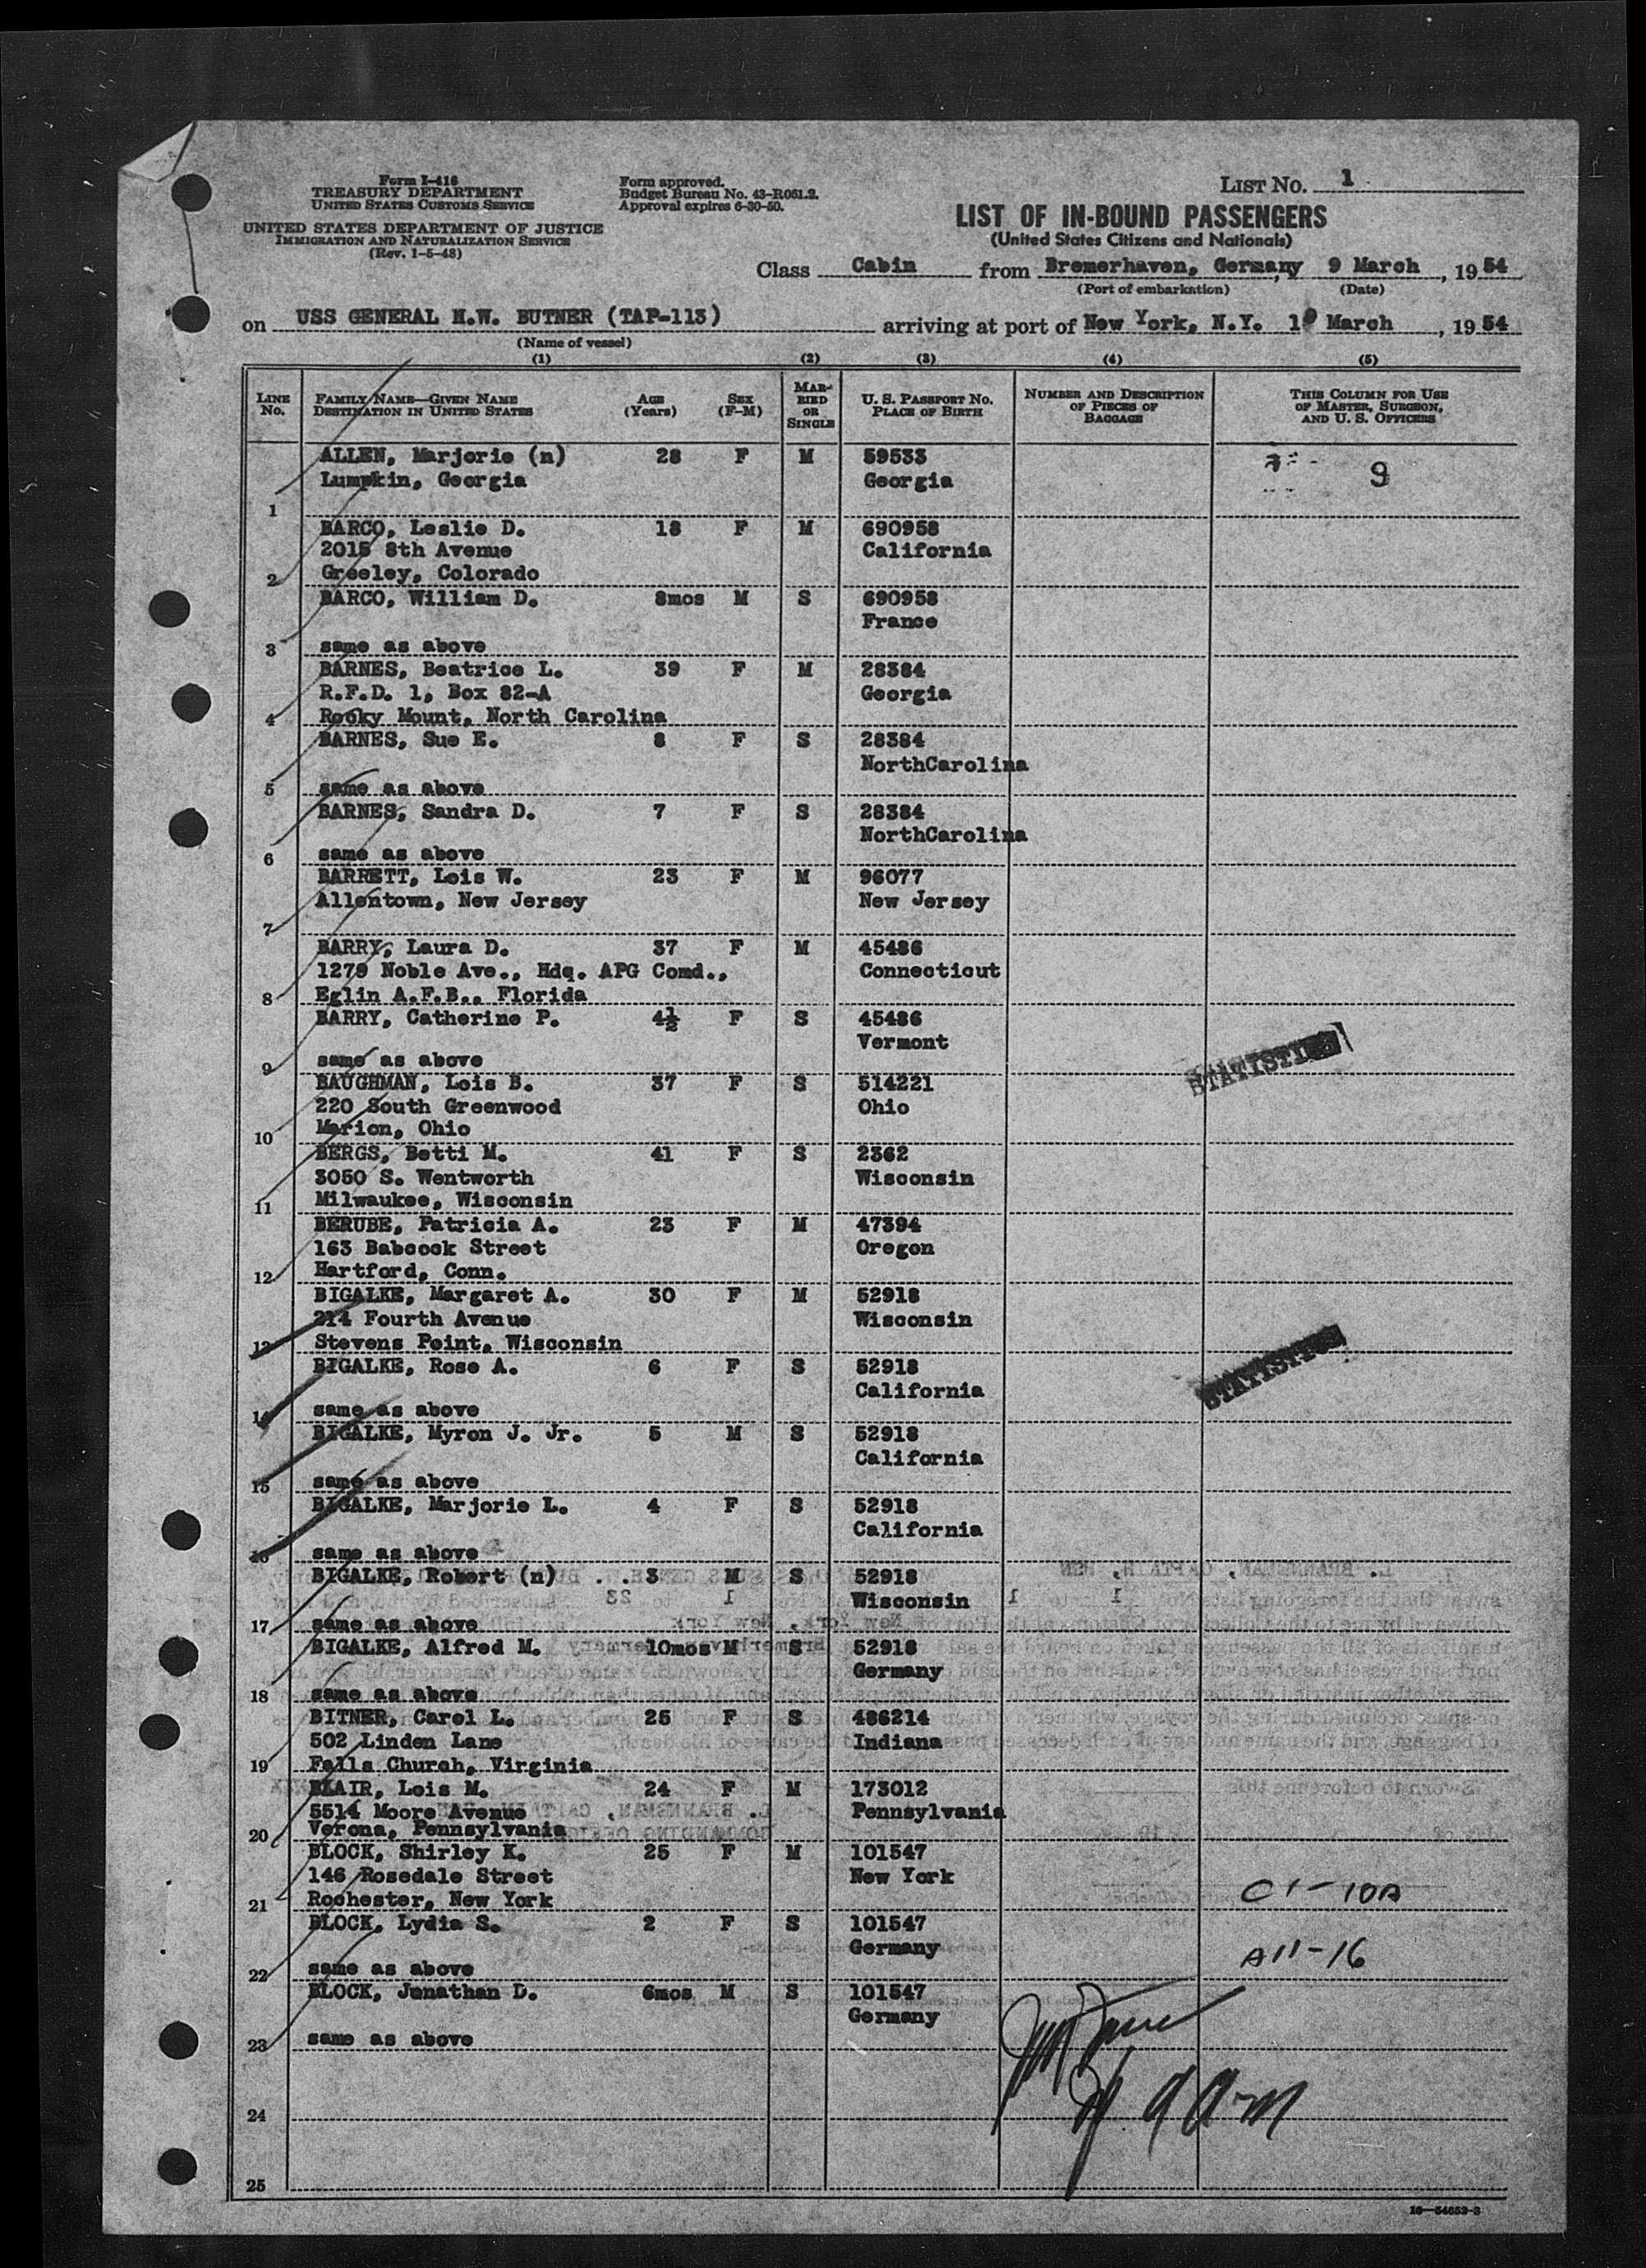 Form I-416
TREASURY DEPARTMENT
UNITED STATES CUSTOMS SERVICE
UNITED STATES DEPARTMENT OF JUSTICE
IMMIGRATION AND NATURALIZATION SERVICE
(Rev. 1-5-48)
Form approved.
Budget Bureau No. 43-R061.2.
Approval expires 6-30-50.
LIST NO. 1
LIST OF IN-BOUND PASSENGERS
(United States Citizens and Nationals)
Class Cabin from Bremerhaven, Germany, 9 March, 1954
(Port of embarkation) (Date)
on USS GENERAL H.W. BUTNER (TAP-113) arriving at port of New York, N.Y. March, 1954
(Name of vessel)
(1) (2) (3) (4) (5)
LINE NO. FAMILY NAME—GIVEN NAME DESTINATION IN UNITED STATES AGE (Years) SEX (F-M) MARRIED OR SINGLE U. S. PASSPORT NO. PLACE OF BIRTH NUMBER AND DESCRIPTION OF PIECES OF BAGGAGE THIS COLUMN FOR USE OF MASTER, SURGEON, AND U. S. OFFICERS
ALLEN, Marjorie (n) 28 F M 59533 9
Lumpkin, Georgia Georgia
1
BARCO, Leslie D. 18 F M 690958
2015 8th Avenue California
2 Greeley, Colorado
BARCO, William D. 8mos M S 690958
France
3 same as above
BARNES, Beatrice L. 39 F M 28384
R.F.D. 1, Box 82-A Georgia
4 Rocky Mount, North Carolina
BARNES, Sue E. 8 F S 28384
NorthCarolina
5 same as above
BARNES, Sandra D. 7 F S 28384
NorthCarolina
6 same as above
BARRETT, Lois W. 23 F M 96077
Allentown, New Jersey New Jersey
7
BARRY, Laura D. 37 F M 45486
1279 Noble Ave., Hdq. APG Comd., Connecticut
8 Eglin A.F.B., Florida
BARRY, Catherine P. 4½ F S 45486
Vermont
9 same as above
STATISTICS
BAUGHMAN, Lois B. 37 F S 514221
220 South Greenwood Ohio
10 Marion, Ohio
BERGS, Betti M. 41 F S 2362
3050 S. Wentworth Wisconsin
11 Milwaukee, Wisconsin
BERUBE, Patricia A. 23 F M 47394
163 Babcock Street Oregon
12 Hartford, Conn.
BIGALKE, Margaret A. 30 F M 52918
214 Fourth Avenue Wisconsin
13 Stevens Point, Wisconsin
BIGALKE, Rose A. 6 F S 52918
California
STATISTICS
14 same as above
BIGALKE, Myron J. Jr. 5 M S 52918
California
15 same as above
BIGALKE, Marjorie L. 4 F S 52918
California
16 same as above
BIGALKE, Robert (n) 3 M S 52918
Wisconsin
17 same as above
BIGALKE, Alfred M. 10mos M S 52918
Germany
18 same as above
BITNER, Carol L. 25 F S 486214
502 Linden Lane Indiana
19 Falls Church, Virginia
BLAIR, Lois M. 24 F M 173012
5514 Moore Avenue Pennsylvania
20 Verona, Pennsylvania
BLOCK, Shirley K. 25 F M 101547
146 Rosedale Street New York
21 Rochester, New York C1-10A
BLOCK, Lydia S. 2 F S 101547
Germany
22 same as above A11-16
BLOCK, Jonathan D. 6mos M S 101547
Germany
23 same as above
24
25
16—54652-2